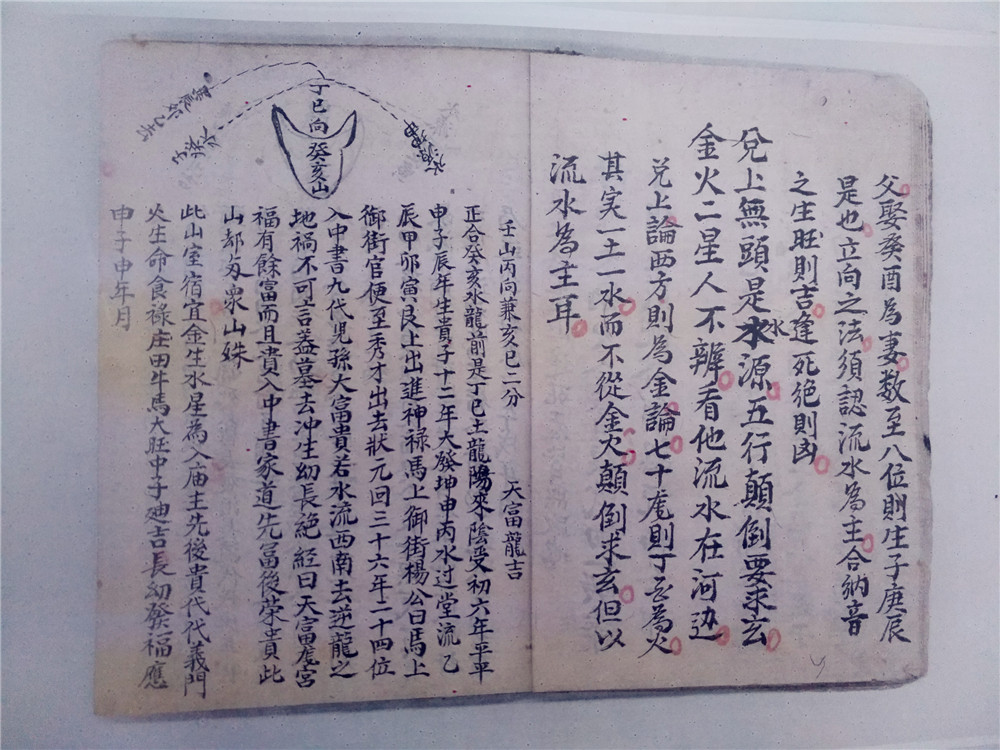 父娶癸酉為妻数至八位則生子庚辰
是也立向之法須認流水為主合納音
之生旺則吉逢死絶則凶
兌上無頭是水源五行顛倒要求玄
水
金火二星人不辨看他流水在河边
兑上論西方則為金論七十龙則丁巳為火
其实一土一水而不從金火顛倒求玄但以
流水為主耳
丁巳向
癸亥山
壬山丙向兼亥巳二分
天富龍吉
正合癸亥水龍前是丁巳土龍陽來陰受初六年平平
申子辰年生貴子十二年大發坤申丙水过堂流乙
辰甲卯寅艮上出進神禄馬上御街楊公曰馬上
御街官便至秀才出去狀元回三十六年二十四位
入中書九代児孫大富貴若水流西南去逆龍之
地禍不可言葢墓去冲生幼長絶經曰天富龙宮
福有餘富而且貴入中書家道先富後荣貴此
山却与衆山姝
此山室宿宜金生水星為入庙主先後貴代代義門
火生命食禄庄田牛馬大旺中子廸吉長幼發福應
申子申年月